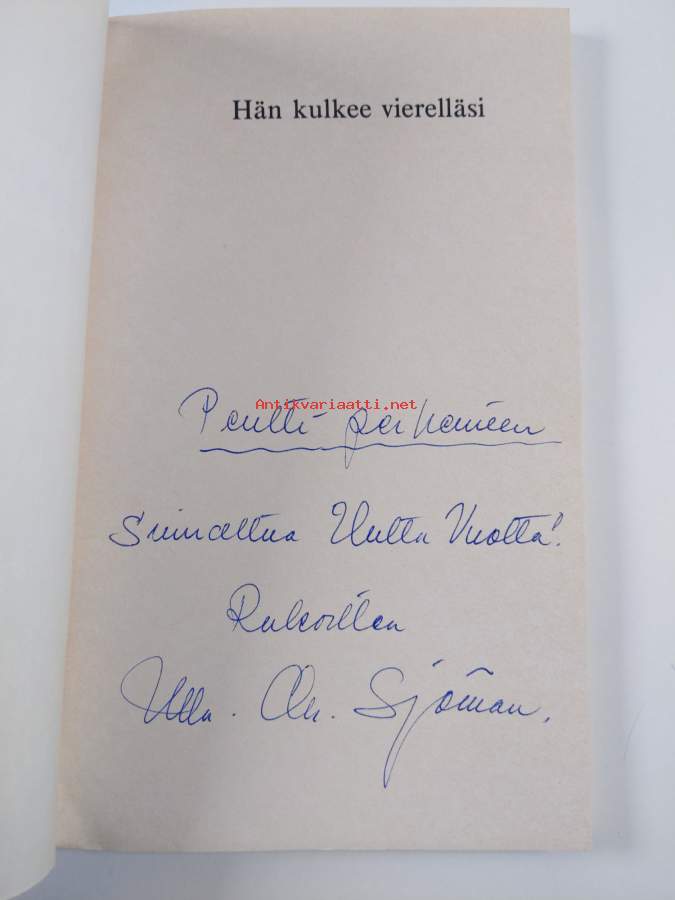 Hän kulkee vierelläsi
Antikvariaatti.net
Pentti perheineen
Siunattua Uutta Vuotta!
Rukoillen
Ulla. Chr. Sjöman.